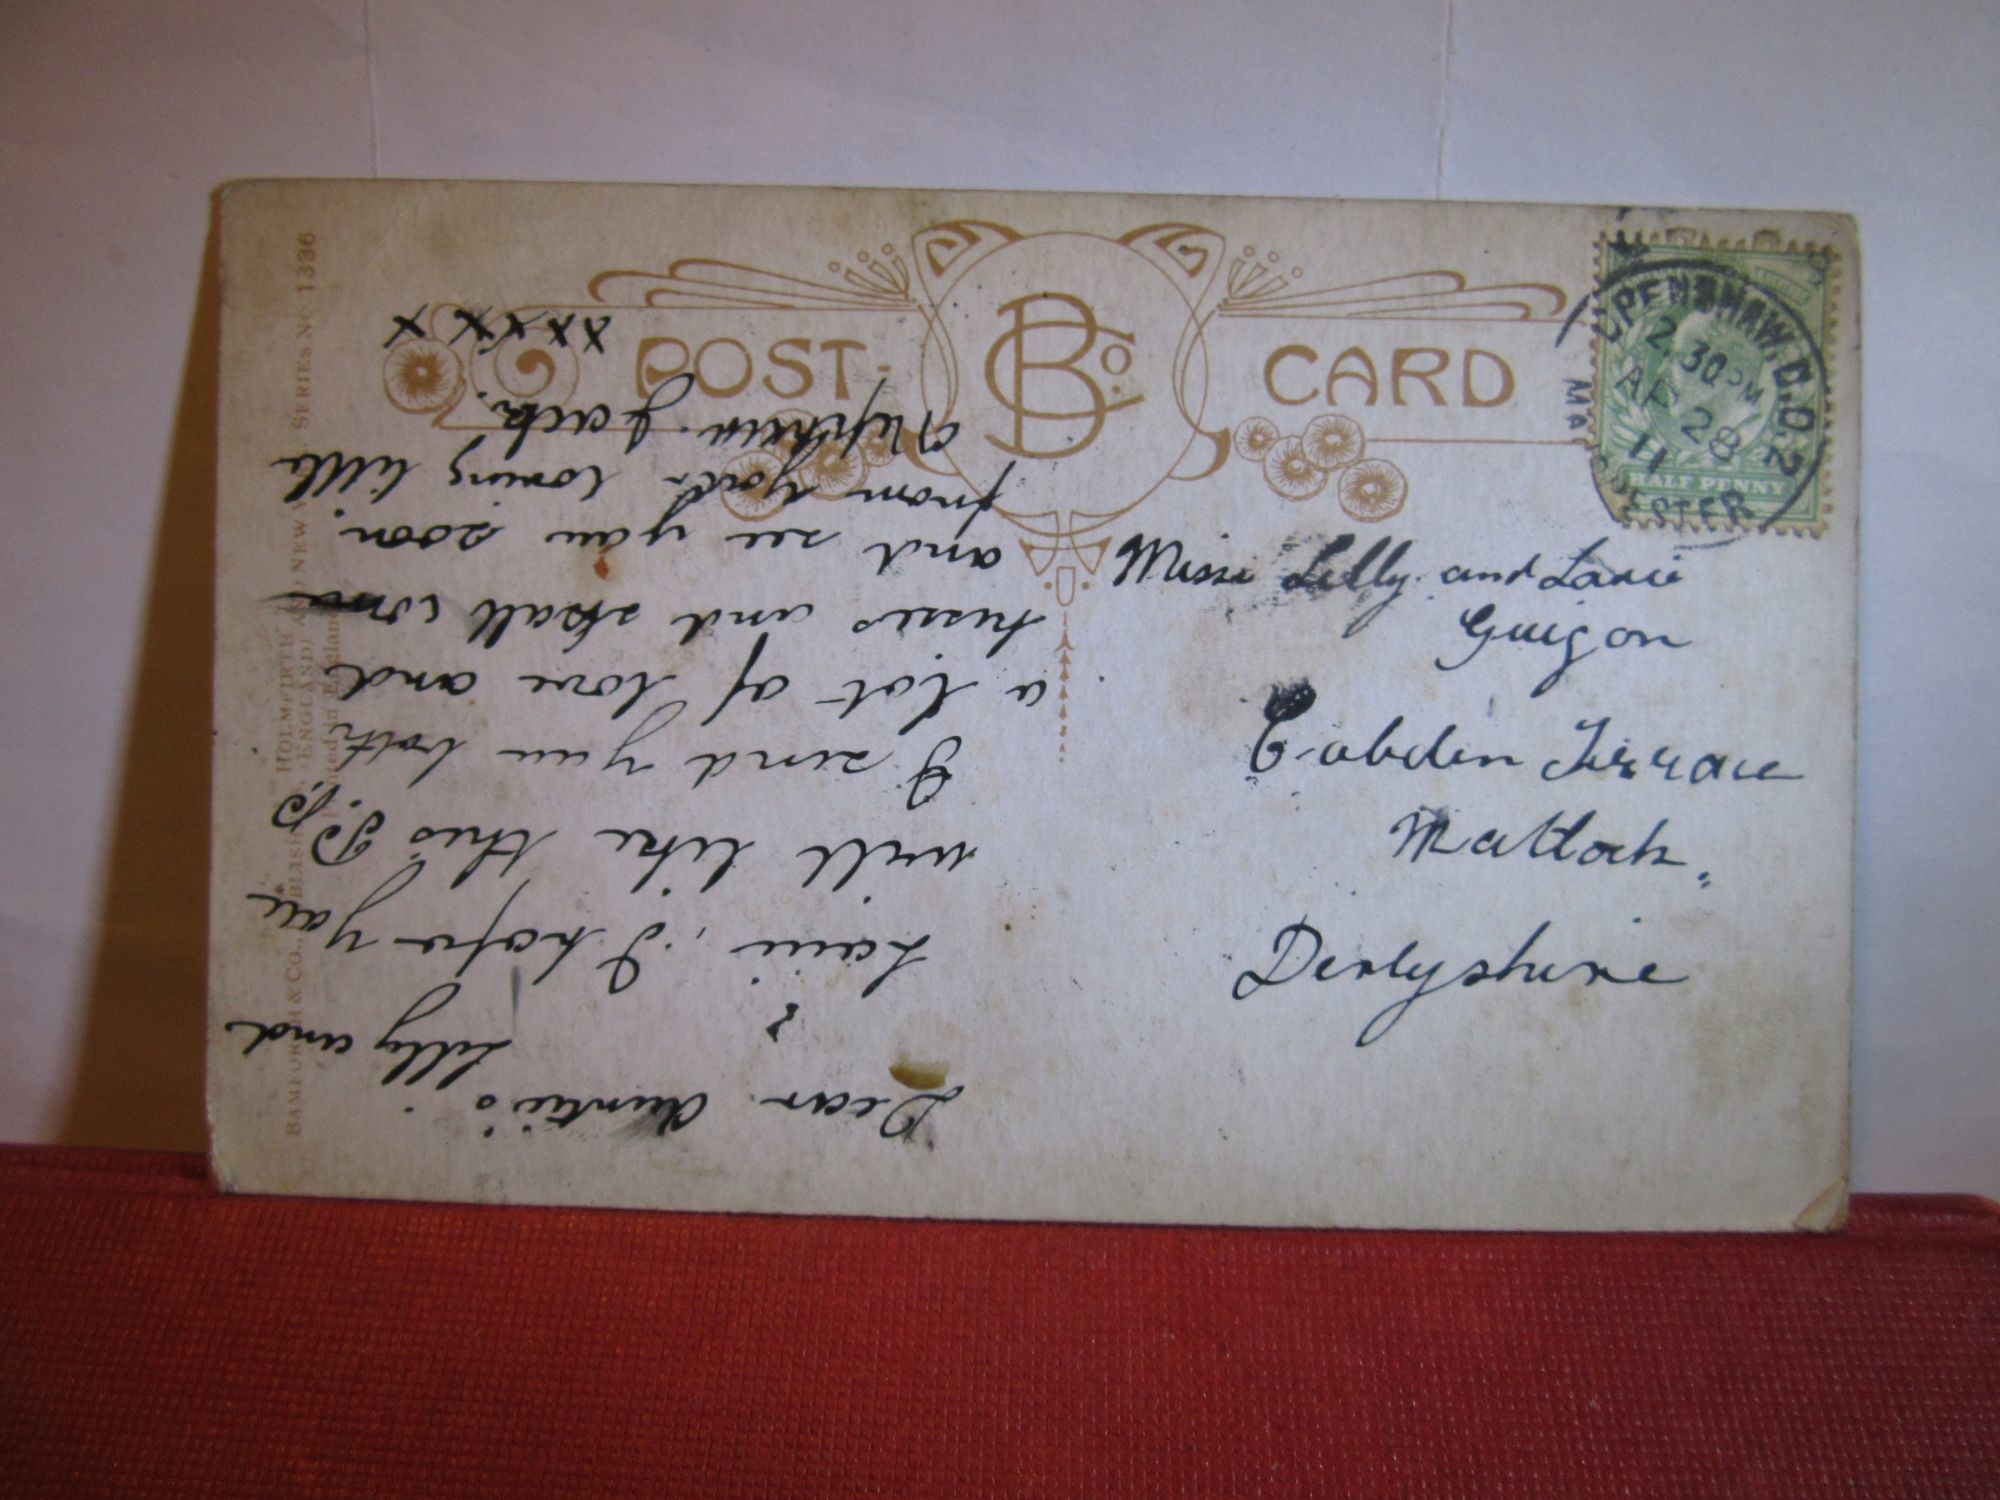 POST CARD
B Co.
OPENSHAW. C.O.2
2.30 PM
AP 28
11
MANCHESTER
HALF PENNY
Miss Lilly and
Cobden Terrace
Matlock.
Derbyshire
Dear Auntie's Lilly and
I hope you
will like this P.P.
I send you both
a lot of love and
kisses and shall come
and see you soon.
from your loving little
Nephew Jack.
xxxx x x x
BAMFORTH & CO., PUBLISHERS, HOLMFIRTH (ENGLAND) AND NEW YORK. SERIES NO 1336
Printed in England